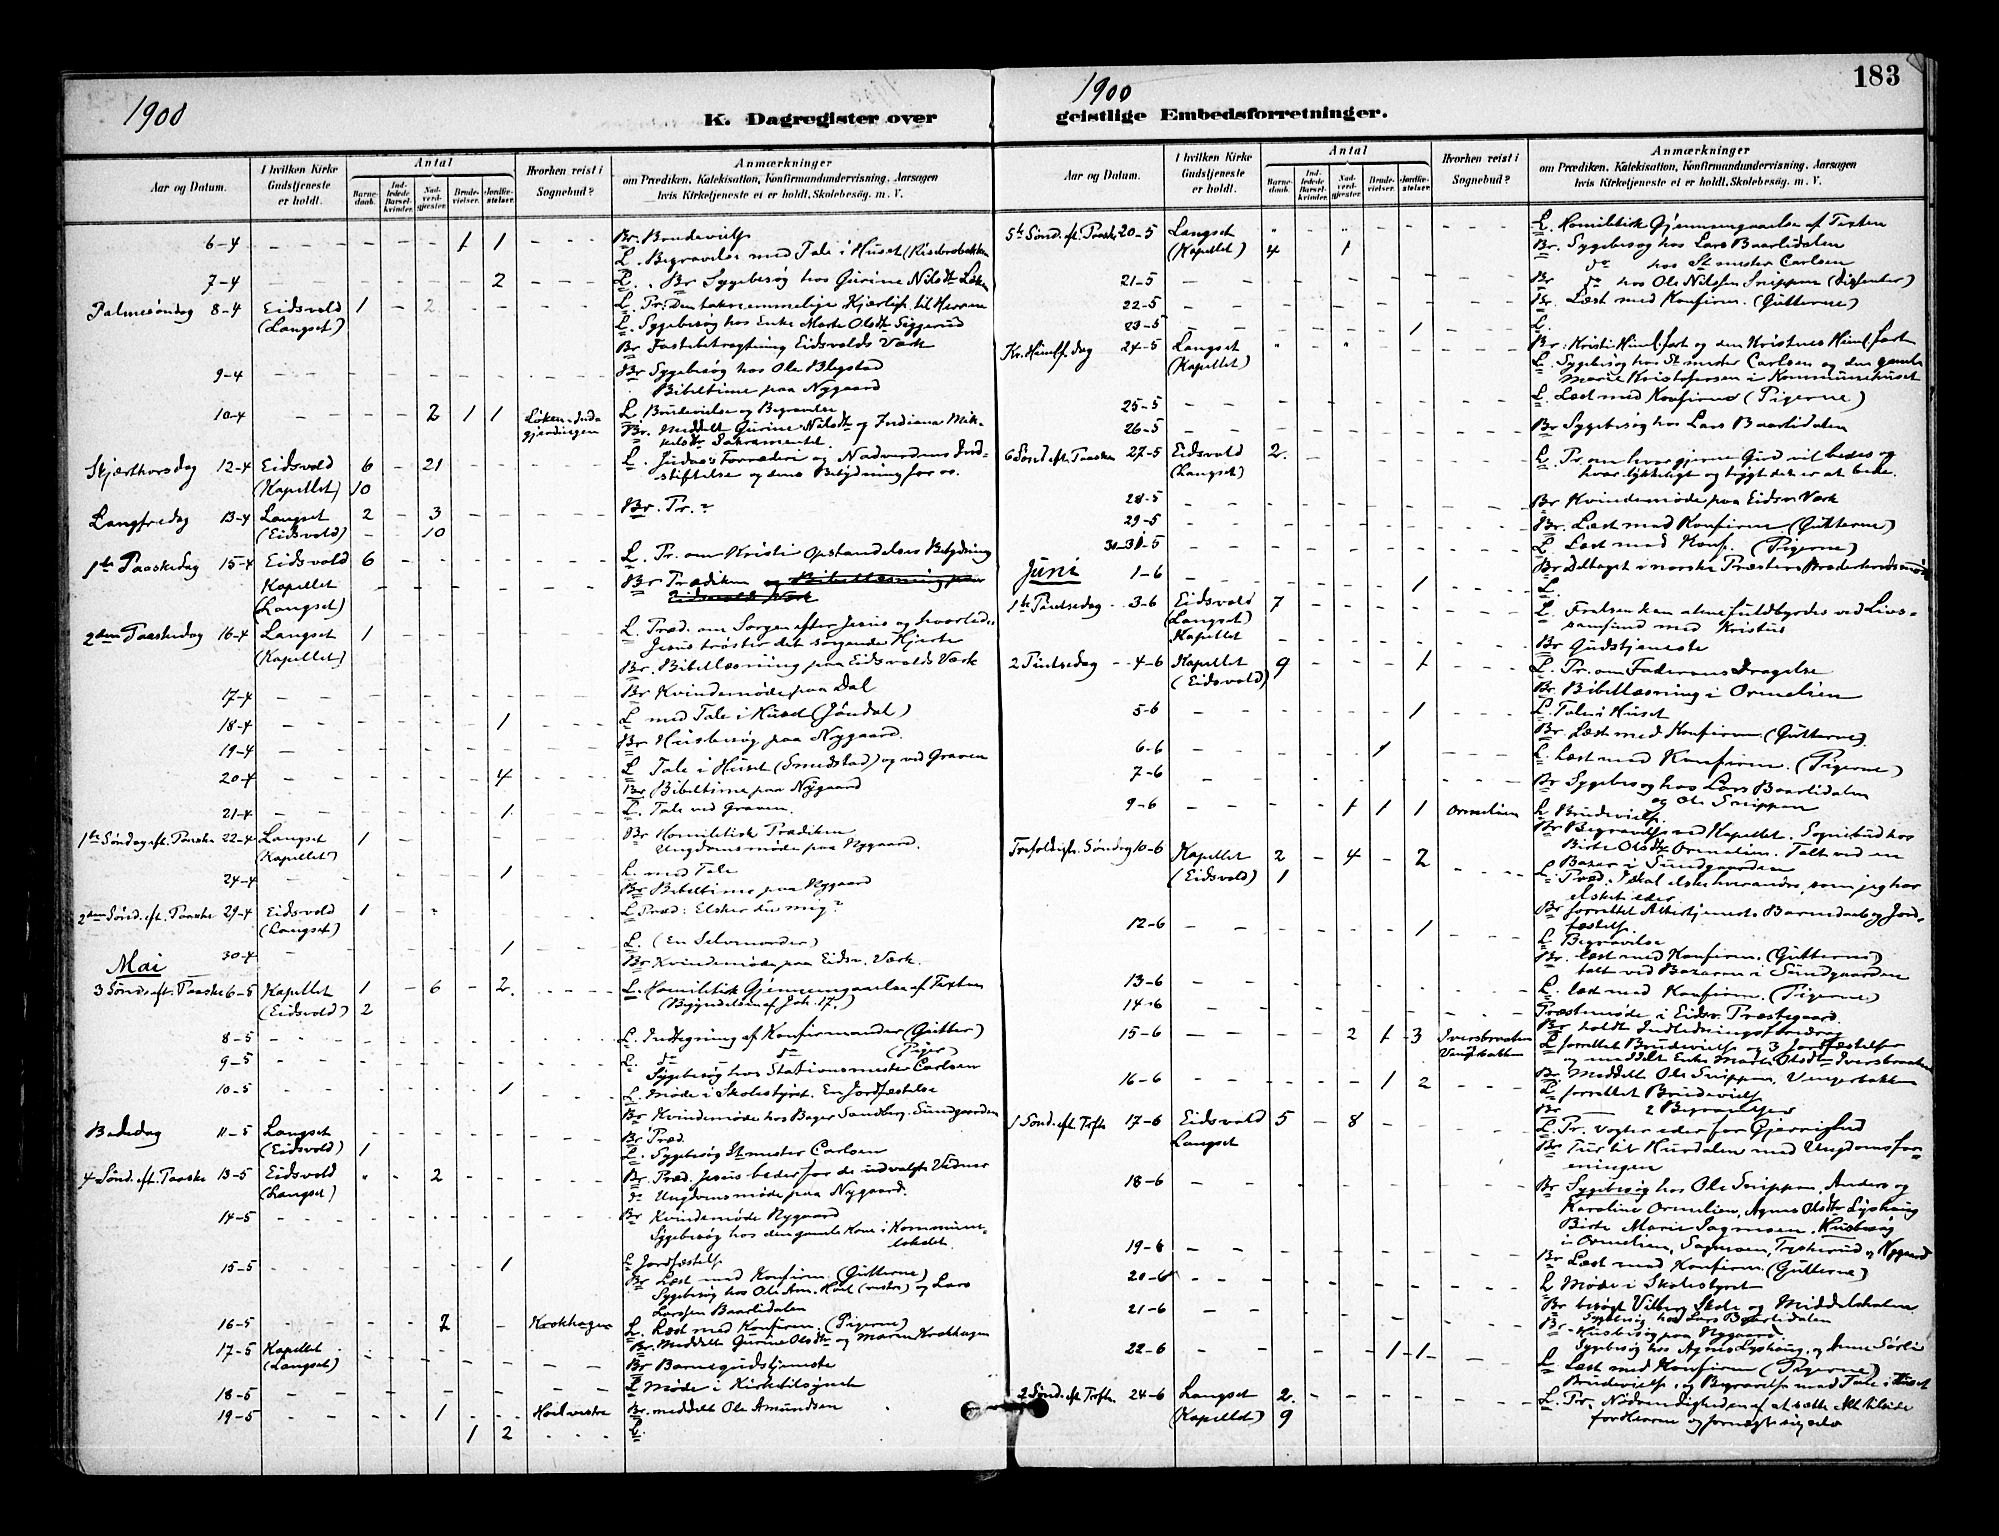 1900
K. Dagregister over
Aar og Datum.
I hvilken Kirke Gudstjeneste er holdt.
Antal
Barnedaab.
Indledede Barselkvinder.
Nadverdgjester.
Brudevielser.
Jordfæstelser.
Hvorhen reist i Sognebud?
Anmærkninger
om Prædiken, Katekisation, Konfirmandundervisning, Aarsagen
hvis Kirketjeneste ei er holdt, Skolebesøg. m. V.
6-4 1 1 Br. Brudevielse
L. Begravelse med Tale i Huset
7-4 2 L. Br Sygebesøg hos Gurine Nilsdtr Løken
Palmesøndag 8-4 Eidsvold 1 2 L. Pr. Den taknemmelige Kjærligh. til Herren
(Langset) L. Sygebesøg hos Enke Marte Olsdtr Siggerud
Br Fastebetragtning Eidsvolds Værk
9-4 Br Sygebesøg hos Ole Blegstad
Bibeltime paa Nygaard
10-4 2 1 1 L. Brudevielse og Begravelse
Br. Meddelt Gurine Nilsdtr og Indiana Mik-
kelsdtr Sakramentet.
Skjærthorsdag 12-4 Eidsvold 6 21 L. Judas's Forræderi og Nadverdens Ind-
(Kapellet) 10 stiftelse og dens Betydning for os.
Langfredag 13-4 Langset 2 3 Br. Pr. ?
(Eidsvold) 10
1ste Paaskedag 15-4 Eidsvold 6 L. Pr. om Kristi Opstandelses Betydning
Kapellet Br Prædiken og Bibellæsning paa
(Langset) Eidsvolds Værk
2den Paaskedag 16-4 Langset 1 L. Præd. om Sorgen efter Jesus og hvorledes
(Kapellet) Jesus trøster det sørgende Hjerte
Br. Bibellæsning paa Eidsvolds Værk
17-4 Br Kvindemøde paa Dal
18-4 1 L med Tale i Huset (Jøndal)
19-4 Br Husbesøg paa Nygaard.
20-4 4 L Tale i Huset (Smedstad) og ved Graven
Br Bibeltime paa Nygaard
21-4 1 L. Tale ved Graven.
1ste Søndag eft. Paaske 22-4 Langset 1 Br Homiletisk Prædiken
(Kapellet) Ungdomsmøde paa Nygaard.
24-4 1 L. med Tale
Br Bibeltime paa Nygaard
2den Sønd. eft. Paaske 29-4 Eidsvold 1 L Præd: Elsker du mig?
(Langset)
30-4 1 L. (En Selvmorder)
Br Kvindemøde paa Eidsv. Værk.
Mai
3 Sønd. eft. Paaske 6-5 Kapellet 1 6 2 L. Homiletisk Gjennemgaaelse af Texten
(Eidsvold) 2 (Begyndelsen af Joh. 17.)
8-5 L. Indtegning af Konfirmander (Gutter)
9-5 L. do do (Piger)
Sygebesøg hos Stationsmester Carlsen
10-5 1 L. Møde i Skolestyret. En Jordfæstelse
Br Kvindemøde hos Bager Sandberg. Sundgaarden
Bededag 11-5 Langset Br Præd.
(Eidsvold) 1 L. Sygebesøg Stmester Carlsen
4 Sønd. eft. Paaske 13-5 Eidsvold " 2 Br Præd. Jesus beder for de udvalgte Vidner
(Langset) do Ungdomsmøde paa Nygaard.
14-5 Br Kvindemøde Nygaard
Sygebesøg hos den gamle Kone i Kommune-
lokalet.
15-5 1 L Jordfæstelse
Br Læst med Konfirm. (Gutterne)
Sygebesøg hos Ole Am. Hoel (vestre) og Lars
Larssen Baarlidalen
16-5 2 Krokhagen L. Læst med Konfirm. (Pigerne)
Br. Meddelt Gurine Olsdtr og Maren Krokhagen
17-5 Kapellet Br Barnegudstjeneste
(Langset)
18-5 L Møde i Kirketilsynet
19-5 1 Hoel vestre Br. meddelt Ole Amundsen
1 2 L.
1900
183
geistlige Embedsforretninger.
Aar og Datum.
I hvilken Kirke Gudstjeneste er holdt.
Antal
Barnedaab.
Indledede Barselkvinder.
Nadverdgjester.
Brudevielser.
Jordfæstelser.
Hvorhen reist i Sognebud?
Anmærkninger
om Prædiken, Katekisation, Konfirmandundervisning, Aarsagen
hvis Kirketjeneste ei er holdt, Skolebesøg. m. V.
5te Sønd. eft. Paaske 20-5 Langset L. Homiletisk Gjennemgaaelse af Texten
(Kapellet) 4 1 Br. Sygebesøg hos Lars Baarlidalen
do hos Stmester Carlsen
21-5 Br do hos Ole Nilsen Snippen (Dissenter)
22-5 Br. Læst med Konfirm. (Gutterne)
23-5 1 L.
Kr. Himlf. dag 24-5 Langset Br: Kristi Himl.fart og den Kristnes Himl.fart
(Kapellet) L. Sygebesøg hos Stmester Carlsen og den gamle
Marie Kristofersen i Kommunehuset
25-5 L. Læst med Konfirm (Pigerne)
26-5 Br Sygebesøg hos Lars Baarlidalen
6 Sønd eft. Paaske 27-5 Eidsvold 2. L. Pr. om hvor gjerne Gud vil bedes og
(Langset) hvor lykkeligt og trygt det er at bede.
28-5 Br Kvindemøde paa Eidsv. Værk
29-5 Br. Læst med Konfirm (Gutterne)
30-31-5 L Læst med Konf. (Pigerne)
Juni 1-6 Br Deltaget i norske Præsters Broderkredsmøde
1 L.
1ste Pintsedag 3-6 Eidsvold 7 L. Frelsen kan alene fuldbyrdes ved Livs-
(Langset) samfund med Kristus
Kapellet Br Gudstjeneste
2 Pintsedag 4-6 Kapellet 9 1 L. Pr. om Faderens Dragelse
(Eidsvold) Br. Bibellæsning i Ormelien
5-6 1 L. Tale i Huset
Br. Læst med Konfirm (Gutterne)
6-6 1 L. Læst med Konfirm. (Pigerne)
7-6 Br Sygebesøg hos Lars Baarlidalen
og Ole Snippen
9-6 1 1 1 Ormelien L Brudevielse.
Br Begravelse ved Kapellet. Sognebud hos
Birte Olsdtr Ormelien. Talt ved en
Bazar i Sundgaarden
Trefoldigh. Søndag 10-6 Kapellet 2 4 2 L. Præd. I skal elske hverandre, som jeg har
(Eidsvold) 1 elsket eder
Br forrettet Alterstjeneste Barnedaab og Jord-
fæstelse.
12-6 1 L Begravelse
Br. læst med Konfirm. (Gutterne)
talt ved Bazaren i Sundgaarden
13-6 L. læst med Konfirm. (Pigerne)
14-6 Præstemøde i Eidsv. Præstegaard.
Br. holdt Indledningsforedrag
15-6 2 1 3 Iversbraaten L forrettet Brudevielse og 3 Jordfæstelser
og meddelt Enke Marte Olsdtr Iversbraaten
Br. Meddelt Ole Snippen, Vengerbakken
16-6 1 2 L. forrettet Brudevielse
Br — 2 Begravelser
1 Sønd. eft. Trfh 17-6 Eidsvold 5 8 L. Pr. Vogter eder for Gjerrighed
Langset Br Tur til Hurdalen med Ungdomsfor-
eningen
18-6 Br Sygebesøg hos Ole Snippen, Anders og
Karoline Ormelien, Agnes Olsdtr Lyshaug
Birte Marie Sagmoen. Husbesøg
i Ormelien, Sagmoen, Tyskerud og Nygaard
19-6 Br. Læst med Konfirm. (Gutterne)
20-6 L Møde i Skolestyret
21-6 Br besøgt Vilberg Skole og Middelskolen
Sygebesøg hos Lars Baarlidalen
Br. Husbesøg paa Nygaard.
22-6 1 1 Sygebesøg hos Agnes Lyshaug, og Anne Sørli
L. Læst med Konfirm (Pigerne)
Brudevielse, og Begravelse med Tale i Huset
2 Sønd. eft Trfh. 24-6 Langset 2. L. Pr. Nødvendigheden af at sætte Alt tilside
(Kapellet) 9 for Herren og fornegte sig selv